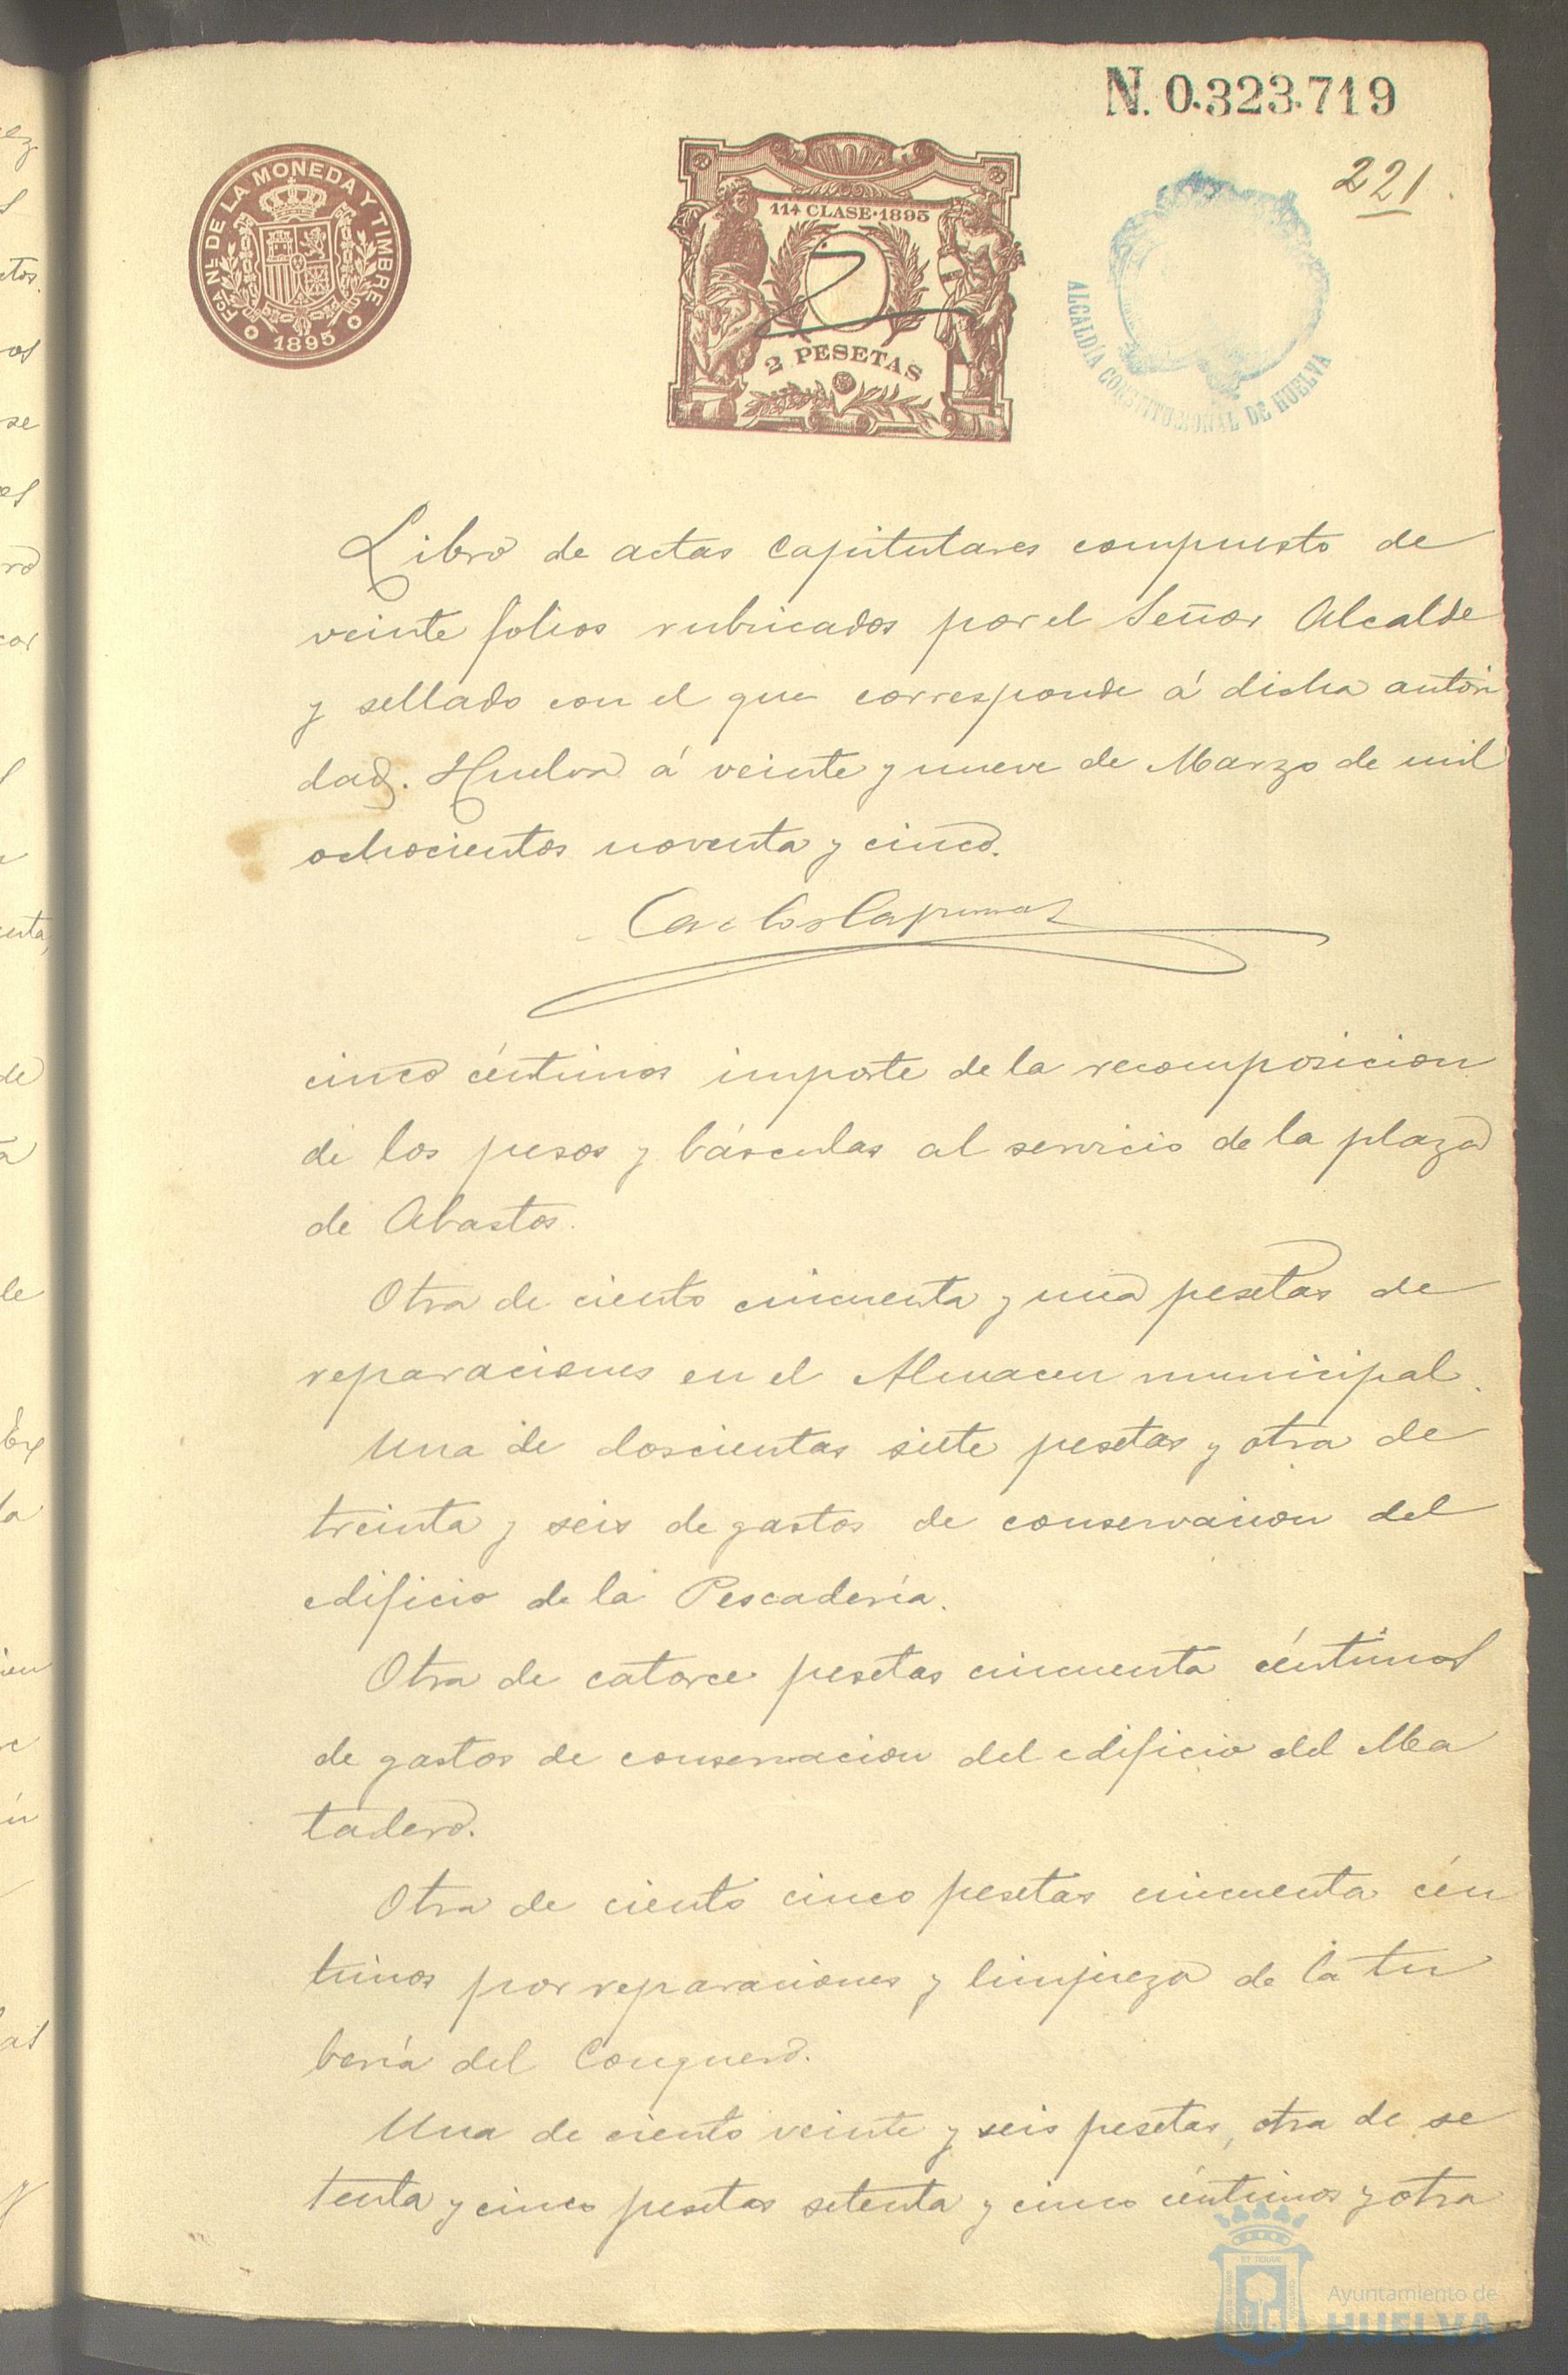 N. 0.323.719
221
FCA NL DE LA MONEDA Y TIMBRE
1895
11ª CLASE·1895
2 PESETAS
ALCALDÍA CONSTITUCIONAL DE HUELVA
Libro de actas Capitulares compuesto de
veinte folios rubricados por el Señor Alcalde
y sellado con el que corresponde á dicha autori
dad. Huelva á veinte y nueve de Marzo de mil
ochocientos noventa y cinco.
Carlos
cinco céntimos importe de la recomposicion
de los pesos y básculas al servicio de la plaza
de Abastos.
Otra de ciento cincuenta y una pesetas de
reparaciones en el Almacen municipal.
Una de doscientas siete pesetas y otra de
treinta y seis de gastos de conservacion del
edificio de la Pescadería.
Otra de catorce pesetas cincuenta céntimos
de gastos de conservacion del edificio del Ma
tadero.
Otra de ciento cinco pesetas cincuenta cén
timos por reparaciones y limpieza de la tu
bería del Conquero.
Una de ciento veinte y seis pesetas, otra de se
tenta y cinco pesetas setenta y cinco céntimos y otra
Ayuntamiento de
HUELVA